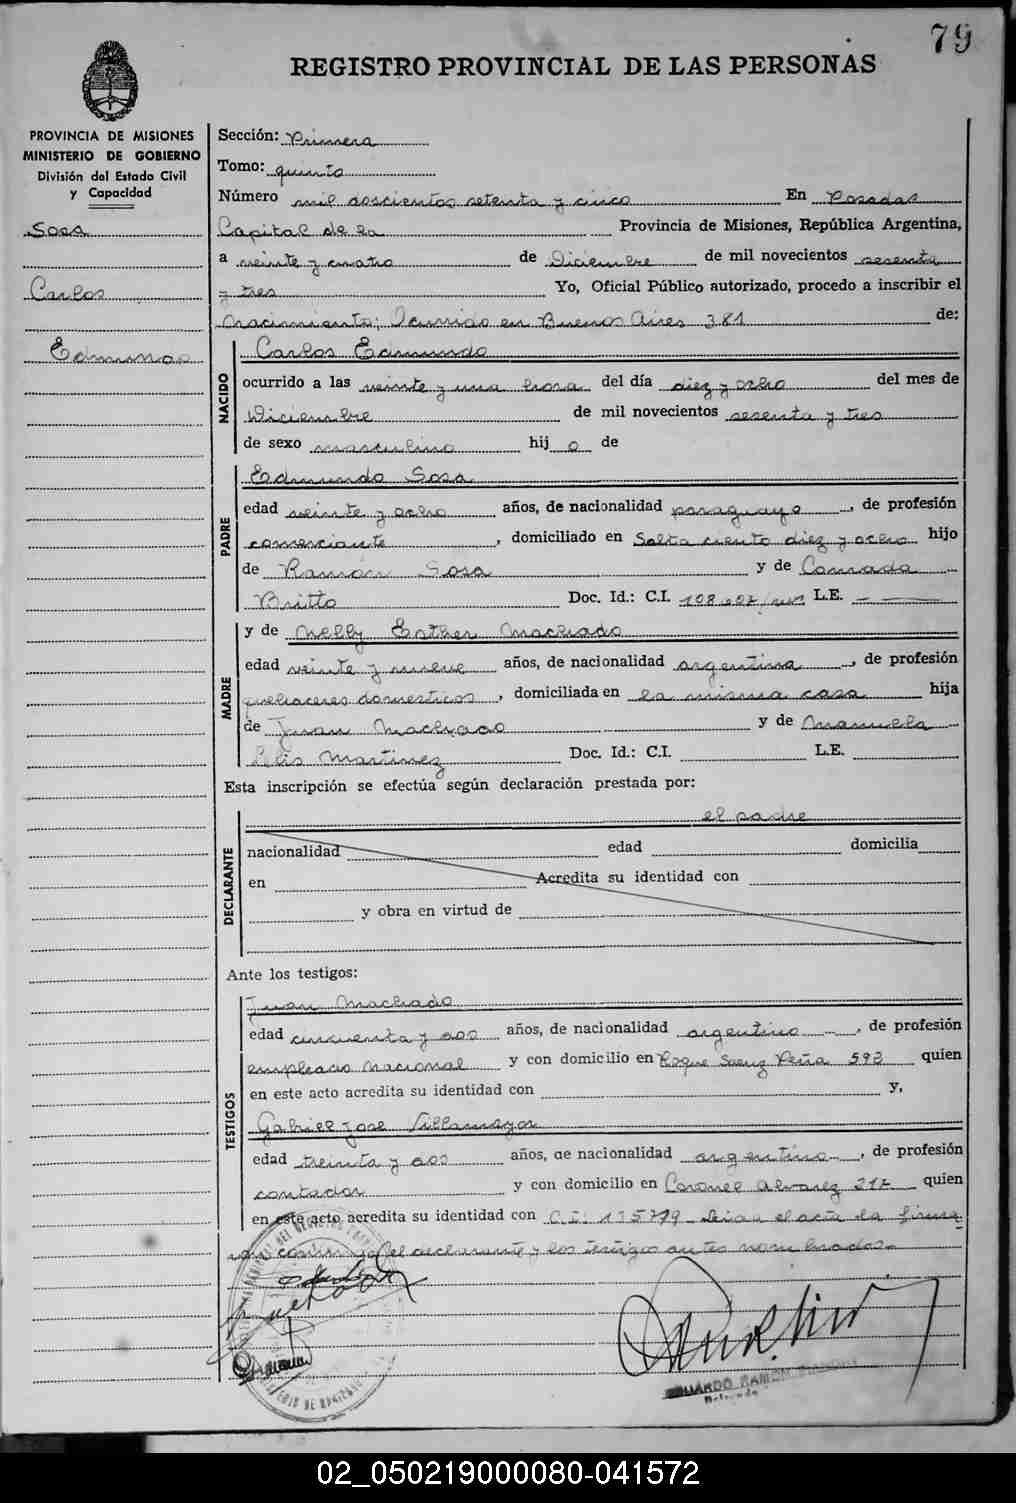 79
REGISTRO PROVINCIAL DE LAS PERSONAS
PROVINCIA DE MISIONES
MINISTERIO DE GOBIERNO
División del Estado Civil
y Capacidad
Sosa
Carlos
Edmundo
Sección: Primera
Tomo: quinto
Número mil doscientos setenta y cinco En Posadas
Capital de la Provincia de Misiones, República Argentina,
a veinte y cuatro de Diciembre de mil novecientos sesenta
y tres Yo, Oficial Público autorizado, procedo a inscribir el
Nacimiento; Ocurrido en Buenos Aires 381 de:
NACIDO
Carlos Edmundo
ocurrido a las veinte y una hora del día diez y ocho del mes de
Diciembre de mil novecientos sesenta y tres
de sexo masculino hijo de
PADRE
Edmundo Sosa
edad veinte y ocho años, de nacionalidad paraguayo, de profesión
comerciante, domiciliado en Salta ciento diez y ocho hijo
de Ramón Sosa y de Conrada
Britto Doc. Id.: C.I. L.E.
MADRE
y de Nelly Esther Machado
edad veinte y nueve años, de nacionalidad argentina, de profesión
quehaceres domesticos, domiciliada en la misma casa hija
de Juan Machado y de Manuela
Martinez Doc. Id.: C.I. L.E.
Esta inscripción se efectúa según declaración prestada por:
el padre
DECLARANTE
nacionalidad edad domicilia
en Acredita su identidad con
y obra en virtud de
Ante los testigos:
TESTIGOS
Juan Machado
edad cincuenta y dos años, de nacionalidad argentino, de profesión
empleado nacional y con domicilio en Roque Saenz Peña 593 quien
en este acto acredita su identidad con y,
Gabriel Jose Villamayor
edad treinta y dos años, de nacionalidad argentino, de profesión
contador y con domicilio en Coronel Alvarez 217 quien
en este acto acredita su identidad con C.I: 135779 Leida el acta la firma
el declarante y los testigos antes nombrados.
EDUARDO RAMON
02_050219000080-041572